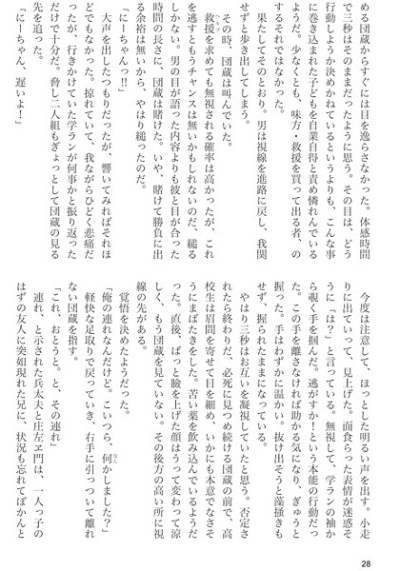 める団蔵からすぐには目を逸らさなかった。体感時間
で三秒はそのままだったように思う。その目は、どう
行動しようか決めかねているというよりも、こんな事
に巻き込まれた子どもを自業自得と責め憐れんでいる
ようだ。少なくとも、味方・救援を買って出る者、の
するそれではなかった。
果たしてそのとおり。男は視線を進路に戻し、我関
せずと歩き出してしまう。
その時、団蔵は叫んでいた。
救援を求めても無視される確率は高かったが、これ
を逃すともうチャンスは無いかもしれないのだ、縋る
しかない。男の目が語った内容よりも彼と目が合った
時間の長さに、団蔵は賭けた。いや、賭けて勝負に出
る余裕は無いから、やはり縋ったのだ。
「にーちゃんっ!!」
大声を出したつもりだったが、響いてみればそれほ
どでもなかった。掠れていて、我ながらひどく悲痛だ
ったが、行きかけていた学ランが何事かと振り返った
だけで十分だ。脅し二人組もぎょっとして団蔵の見る
先を追った。
「にーちゃん、遅いよ!」
今度は注意して、ほっとした明るい声を出す。小走
りに出ていって、見上げた。面食らった表情が迷惑そ
うに「は?」と言っている。無視して、学ランの袖か
ら覗く手を掴んだ。逃がすか!という本能の行動だっ
た。この手を離さなければ助かる気になり、ぎゅうと
握った。手はわずかに温かい。抜け出そうと藻掻きも
せず、握られたままになっている。
やはり三秒はお互いを凝視していたと思う。否定さ
れたら終わりだ、必死に見つめ続ける団蔵の前で、高
校生は眉間を寄せて目を細め、いかにも本意でなさそ
うにまばたきをした。苦い薬を飲み込んでいるようだ
った。直後、ぱっと瞼を上げた顔はうって変わって涼
しく、もう団蔵を見ていない。その後方の高い所に視
線の先がある。
覚悟を決めたようだった。
「俺の連れなんだけど。こいつら、何かしました?」
軽快な足取りで戻っていき、右手に引っついて離れ
ない団蔵を指す。
「これ、おとうと。と、その連れ」
連れ、と示された兵太夫と庄左ヱ門は、一人っ子の
はずの友人に突如現れた兄に、状況も忘れてぽかんと
28